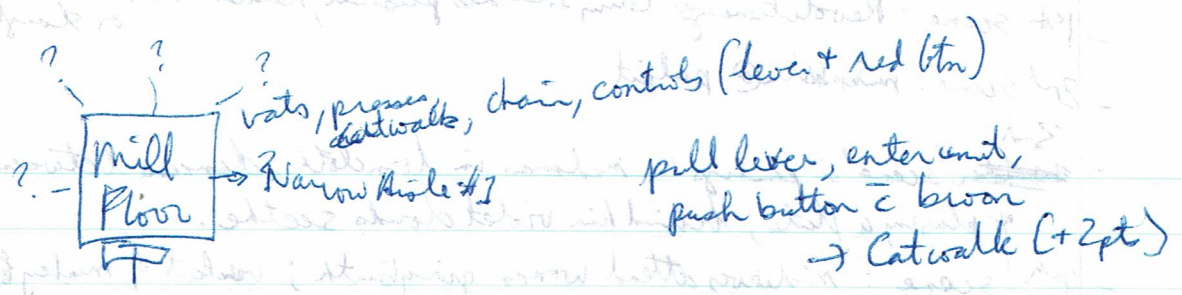 ? ? ?
vats, presses, catwalk, chain, controls (lever + red btn)
? Mill Floor → Narrow Aisle #1
pull lever, enter unit,
push button c̄ broom
→ Catwalk (+2pts)